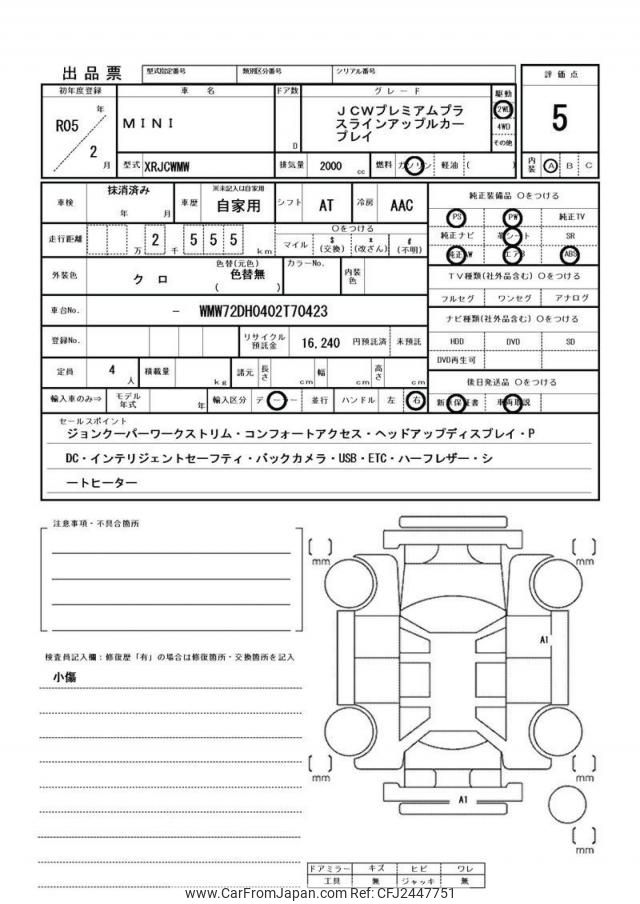 出品票
型式指定番号
類別区分番号
シリアル番号
評価点
初年度登録
車名
ドア数
グレード
駆動
R05
年
2
月
MINI
D
JCWプレミアムプラ
スラインアップルカー
プレイ
2WD
4WD
その他
5
型式
XRJCWMW
排気量
2000
cc
燃料
ガソリン
軽油
(
)
内装
A
B
C
車検
抹消済み
年
月
車歴
※未記入は自家用
自家用
シフト
AT
冷房
AAC
純正装備品 Oをつける
PS
PW
純正TV
走行距離
万
2
千
5
5
5
km
Oをつける
マイル
$
(交換)
x
(改ざん)
#
(不明)
純正ナビ
革シート
SR
純正AW
エアB
ABS
外装色
クロ
色替(元色)
色替無
(
)
カラーNo.
内装色
TV種類(社外品含む) Oをつける
フルセグ
ワンセグ
アナログ
車台No.
-
WMW72DH0402T70423
ナビ種類(社外品含む) Oをつける
登録No.
リサイクル
預託金
16,240
円預託済
未預託
HDD
DVD
SD
DVD再生可
定員
4
人
積載量
kg
諸元
長さ
cm
幅
cm
高さ
cm
後日発送品 Oをつける
輸入車のみ⇒
モデル
年式
年
輸入区分
ディーラー
並行
ハンドル
左
右
新車保証書
車両取説
セールスポイント
ジョンクーパーワークストリム・コンフォートアクセス・ヘッドアップディスプレイ・P
DC・インテリジェントセーフティ・バックカメラ・USB・ETC・ハーフレザー・シ
ートヒーター
注意事項・不具合箇所
検査員記入欄：修復歴「有」の場合は修復箇所・交換箇所を記入
小傷
[ ]
mm
[ ]
mm
A1
[ ]
mm
[ ]
mm
A1
[ ]
mm
ドアミラー
キズ
ヒビ
ワレ
工具
無
ジャッキ
無
www.CarFromJapan.com Ref: CFJ2447751